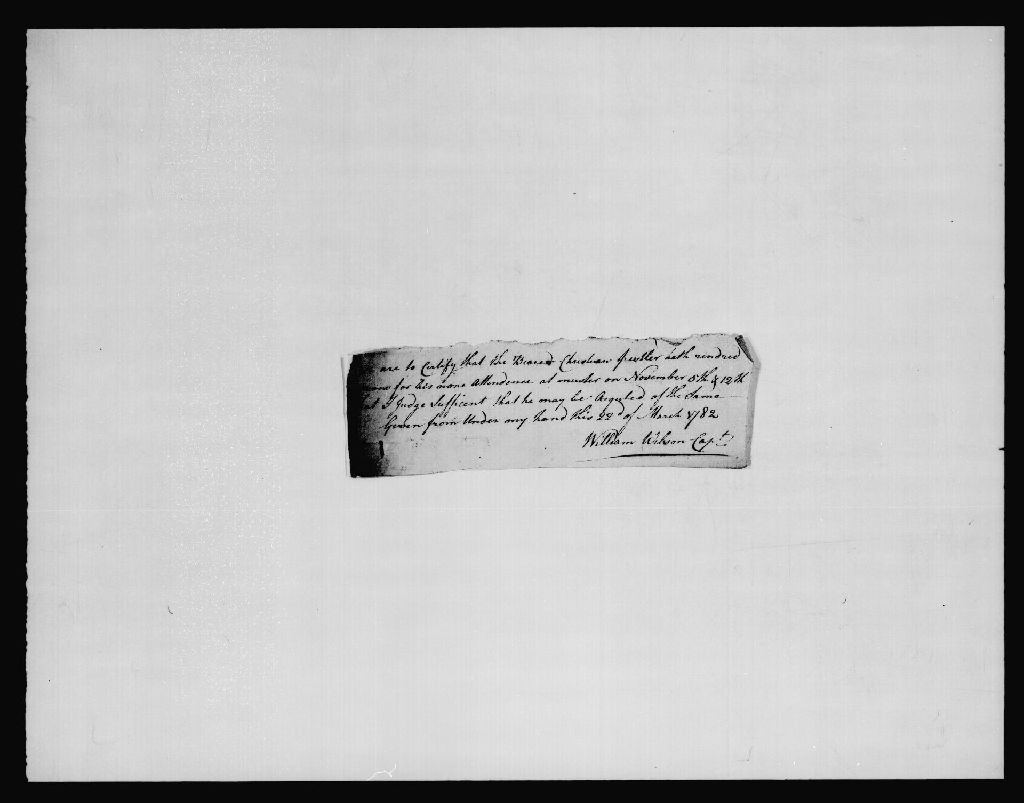 are to Certify that the Bearer Christian hath rendred
for his none Attendence at muster on November 5th & 12th
I Judge Sufficent that he may be Aequited of the Same
Given from Under my hand this 22d of March 1782
William Wilson Capt